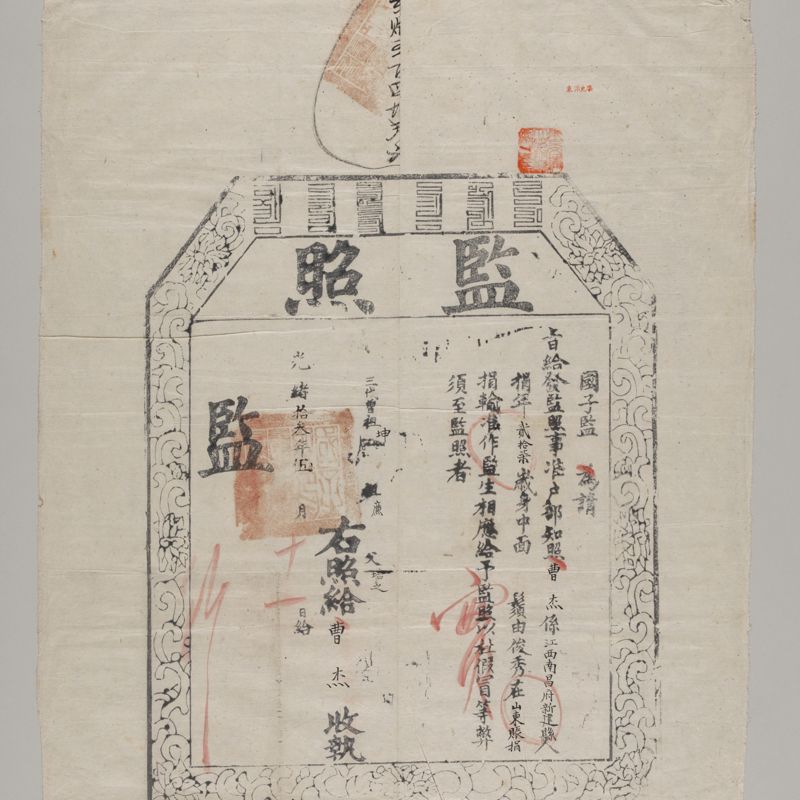 監照
國子監 為請
旨給發監照事准戶部知照曹杰係江西南昌府新建縣人
捐年貳拾柒歲身中面 鬚由俊秀在山東賑捐
捐輸准作監生相應給予監照以杜假冒等弊
須至監照者
三代曾祖坤 祖廉 父
右照給曹杰收執
光緒拾叁年伍月十一日給
監